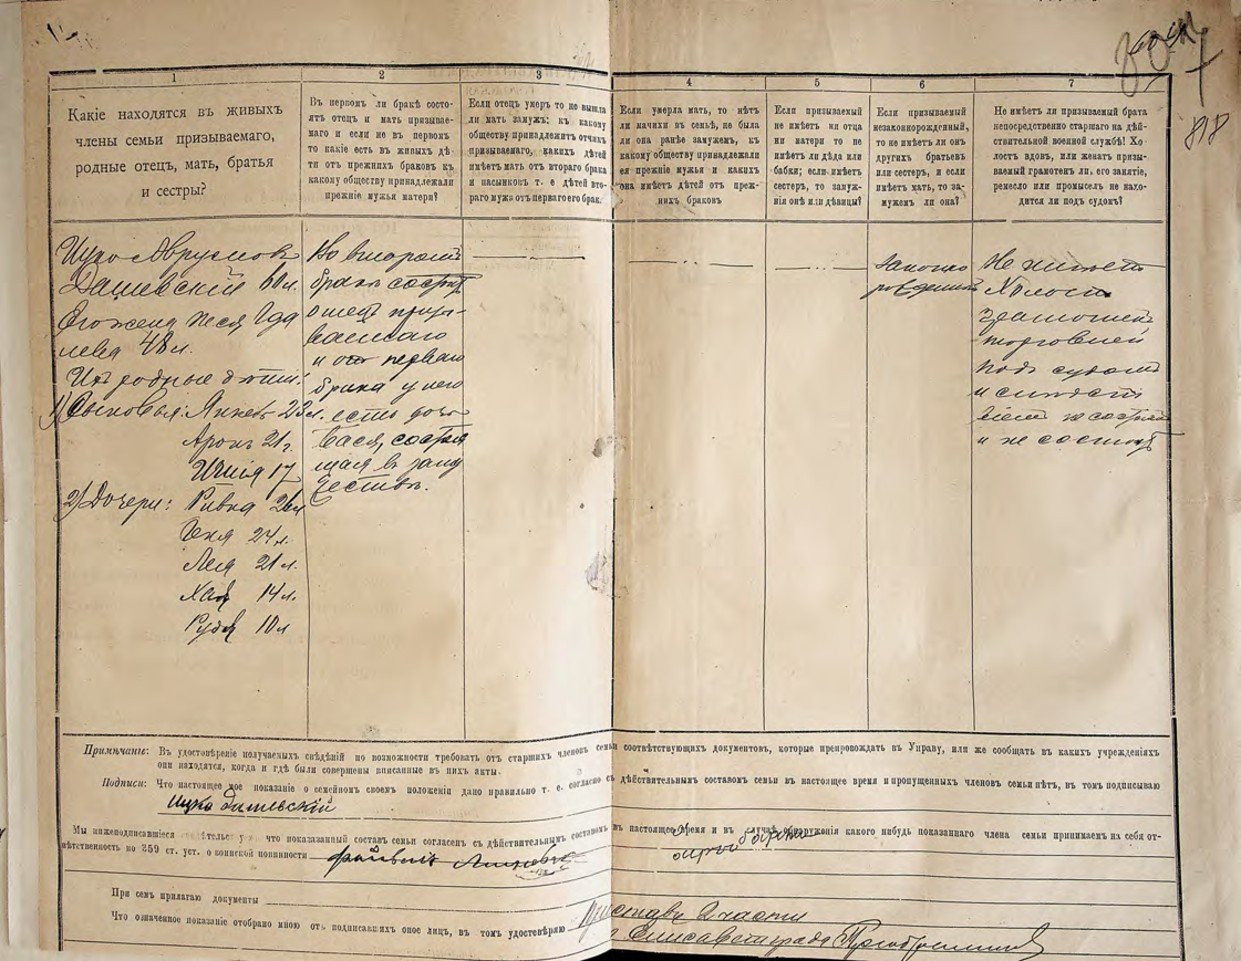 807
818
1
2
3
4
5
6
7
Какіе находятся въ живыхъ
члены семьи призываемаго,
родные отецъ, мать, братья
и сестры?
Въ первомъ ли бракѣ состо-
ятъ отецъ и мать призывае-
маго и если не въ первомъ
то какіе есть въ живыхъ дѣ-
ти отъ прежнихъ браковъ къ
какому обществу принадлежали
прежніе мужья матери?
Если отецъ умеръ то не вышла
ли мать замужъ; къ какому
обществу принадлежитъ отчимъ
призываемаго, какихъ дѣтей
имѣетъ мать отъ втораго брака
и пасынковъ т. е. дѣтей вто-
раго мужа отъ перваго его брака.
Если умерла мать, то нѣтъ
ли мачихи въ семьѣ, не была
ли она ранѣе замужемъ, къ
какому обществу принадлежали
ея прежніе мужья и какихъ
она имѣетъ дѣтей отъ преж-
нихъ браковъ
Если призываемый
не имѣетъ ни отца
ни матери то не
имѣетъ ли дѣда или
бабки; если имѣетъ
сестеръ, то замуж-
нія онѣ или дѣвицы?
Если призываемый
незаконнорожденный,
то не имѣетъ ли онъ
другихъ братьевъ
или сестеръ, и если
имѣетъ мать, то за-
мужемъ ли она?
Не имѣетъ ли призываемый брата
непосредственно старшаго на дѣй-
ствительной военной службѣ? Хо-
лостъ вдовъ, или женатъ призы-
ваемый грамотенъ ли, его занятіе,
ремесло или промыселъ не нахо-
дится ли подъ судомъ?
Ицко Аврумовъ
Дашевскій 60 л.
Его жена Песя
48 л.
Ихъ родные дѣти:
1) Сыновья: Янкель 23 л.
Аронъ 21 г.
17
2) Дочери: Ривка 26 л
24 л.
Лея 21 л.
Хая 14 л.
Рудя 10 л
Во второмъ
бракѣ состоитъ
отецъ призы-
ваемаго
и отъ перваго
брака у него
есть дочь
Бася, состоя
щая въ заму
жествѣ.
Законно
рожденный
Не имѣетъ
Холостъ
Грамотный
торговлей
подъ судомъ
и слѣдст
віемъ не состоялъ
и не состоитъ
Примѣчаніе: Въ удостовѣреніе получаемыхъ свѣдѣній по возможности требовать отъ старшихъ членовъ семьи соотвѣтствующихъ документовъ, которые препровождать въ Управу, или же сообщать въ какихъ учрежденіяхъ
они находятся, когда и гдѣ были совершены вписанные въ нихъ акты.
Подписи: Что настоящее мое показаніе о семейномъ своемъ положеніи дано правильно т. е. согласно съ дѣйствительнымъ составомъ семьи въ настоящее время и пропущенныхъ членовъ семьи нѣтъ, въ томъ подписываю
Ицко Дашевскій
Мы нижеподписавшіеся что показанный составъ семьи согласенъ съ дѣйствительнымъ составомъ въ настоящее время и въ случаѣ обнаруженія какого нибудь показаннаго члена семьи принимаемъ на себя от-
вѣтственность по 359 ст. уст. о воинской повинности
При семъ прилагаю документы
Что означенное показаніе отобрано мною отъ подписавшихъ оное лицъ, въ томъ удостовѣряю Приставъ 2 части
г. Елисаветграда